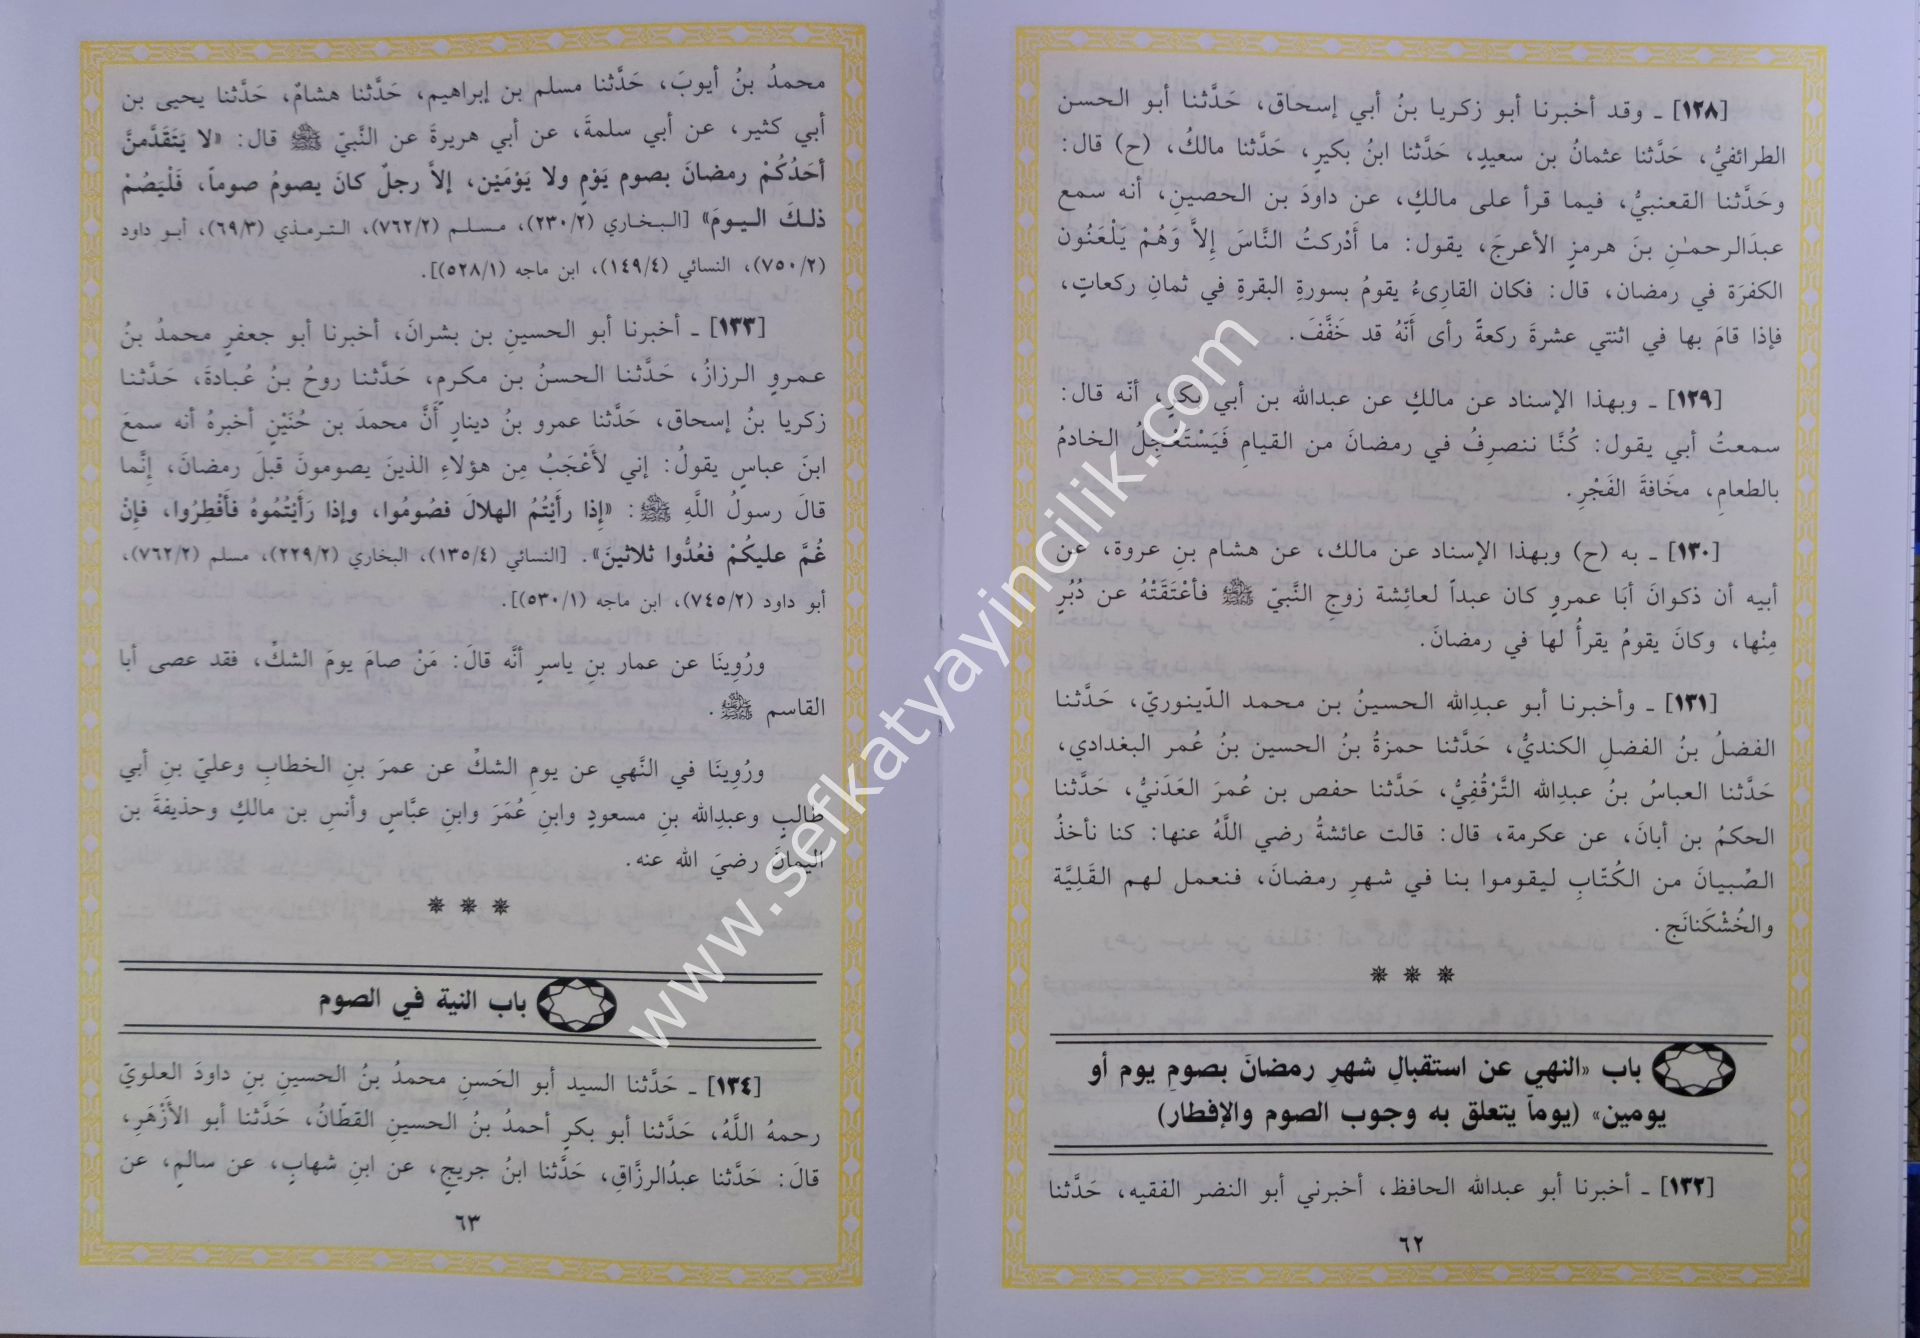 [١٢٨] ـ وقد أخبرنا أبو زكريا بنُ أبي إسحاق، حَدَّثنا أبو الحسن
الطرائفيُّ، حَدَّثنا عثمانُ بن سعيدٍ، حَدَّثنا ابنُ بكيرٍ، حَدَّثنا مالكُ، (ح) قال:
وحَدَّثنا القعنبيُّ، فيما قرأ على مالكٍ، عن داودَ بن الحصينِ، أنه سمع
عبدَالرحمٰنِ بنَ هرمزٍ الأعرجَ، يقول: ما أَدْركتُ النَّاسَ إلاَّ وَهُمْ يَلْعَنُون
الكفرَة في رمضان، قال: فكان القارِىءُ يقومُ بسورةِ البقرةِ في ثمانِ ركعاتٍ،
فإذا قامَ بها في اثنتي عشرةَ ركعةً رأى أنّهُ قد خَفَّفَ.
[١٢٩] ـ وبهذا الإسناد عن مالكٍ عن عبدالله بن أبي بكرٍ، أنّه قال:
سمعتُ أبي يقول: كُنَّا ننصرِفُ في رمضانَ من القيامِ فَيَسْتَعْجِلُ الخادمُ
بالطعامِ، مخَافةَ الفَجْرِ.
[١٣٠] ـ به (ح) وبهذا الإسناد عن مالك، عن هشام بنِ عروة، عن
أبيه أن ذكوانَ أبَا عمروٍ كان عبداً لعائِشة زوجِ النَّبيّ ﷺ فأعْتَقَتْهُ عن دُبُرٍ
مِنْها، وكانَ يقومُ يقرأُ لها في رمضانَ.
[١٣١] ـ وأخبرنا أبو عبدِالله الحسينُ بن محمد الدّينوريّ، حَدَّثنا
الفضلُ بنُ الفضلِ الكنديُّ، حَدَّثنا حمزةُ بنُ الحسين بنُ عُمر البغدادي،
حَدَّثنا العباسُ بنُ عبدِالله التَّرْقُفِيُّ، حَدَّثنا حفص بن عُمرَ العَدَنيُّ، حَدَّثنا
الحكمُ بن أبانَ، عن عكرمة، قال: قالت عائشةُ رضي اللَّهُ عنها: كنا نأخذُ
الصِّبيانَ من الكُتّابِ ليقوموا بنا في شهرِ رمضانَ، فنعمل لهم القَلِيَّة
والخُشْكَنانَج.
باب «النهي عن استقبالِ شهرِ رمضانَ بصومِ يوم أو
يومين» (يوماً يتعلق به وجوب الصوم والإفطار)
[١٣٢] ـ أخبرنا أبو عبدالله الحافظ، أخبرني أبو النضر الفقيه، حَدَّثنا
٦٢
محمدُ بنُ أيوبَ، حَدَّثنا مسلم بن إبراهيم، حَدَّثنا هشامٌ، حَدَّثنا يحيى بن
أبي كثير، عن أبي سلمةَ، عن أبي هريرةَ عن النَّبيّ ﷺ قال: «لا يَتَقَدَّمنَّ
أحَدُكُمْ رمضانَ بصوم يَوْمٍ ولا يَوْمَيَن، إلاَّ رجلٌ كانَ يصومُ صوماً، فَلْيَصُمْ
ذلـكَ الـيـومَ» [الـبـخاري (٢٣٠/٢)، مـسـلـم (٧٦٢/٢)، الـتـرمـذي (٦٩/٣)، أبـو داود
(٧٥٠/٢)، النسائي (١٤٩/٤)، ابن ماجه (٥٢٨/١)].
[١٣٣] ـ أخبرنا أبو الحسينِ بن بشرانَ، أخبرنا أبو جعفرٍ محمدُ بنُ
عمـروٍ الـرزازُ، حَدَّثنا الـحسنُ بن مكـرمٍ، حَدَّثنا روحُ بنُ عُبـادةَ، حَدَّثنا
زكريا بنُ إسحاق، حَدَّثنا عمرو بنُ دينارٍ أنَّ محمدَ بن حُنَيْنٍ أخبرهُ أنه سمعَ
ابنَ عباسٍ يقولُ: إني لأَعْجَبُ مِن هؤلاءِ الذينَ يصومونَ قبلَ رمضانَ، إنَّما
قالَ رسولُ اللَّهِ ﷺ: «إذا رأَيْتُمُ الهلالَ فصُومُوا، وإذا رَأَيْتُموهُ فأَفْطِرُوا، فإنْ
غُمَّ عليكُمْ فعُدُّوا ثلاثينَ». [النسائي (١٣٥/٤)، البخاري (٢٢٩/٢)، مسلم (٧٦٢/٢)،
أبو داود (٧٤٥/٢)، ابن ماجه (٥٣٠/١)].
ورُوِينَا عن عمار بنِ ياسرٍ أنَّه قالَ: مَنْ صامَ يومَ الشكِّ، فقد عصى أبا
القاسم ﷺ.
ورُوِينَا في النَّهي عن يومِ الشكِّ عن عمرَ بنِ الخطابِ وعليّ بنِ أبي
طالبٍ وعبدِالله بنِ مسعودٍ وابنِ عُمَرَ وابنِ عبَّاسٍ وأنسِ بن مالكٍ وحذيفةَ بن
اليمانَ رضيَ الله عنه.
باب النية في الصوم
[١٣٤] ـ حَدَّثنا السيد أبو الحَسنِ محمدُ بنُ الحسينِ بنِ داودَ العلويّ
رحمهُ اللَّهُ، حَدَّثنا أبو بكرٍ أحمدُ بنُ الحسينِ القطّانُ، حَدَّثنا أبو الأَزْهَرِ،
قالَ: حَدَّثنا عبدُالرزَّاقِ، حَدَّثنا ابنُ جريجٍ، عن ابنِ شهابٍ، عن سالمٍ، عن
٦٣
www.sefkatyayincilik.com